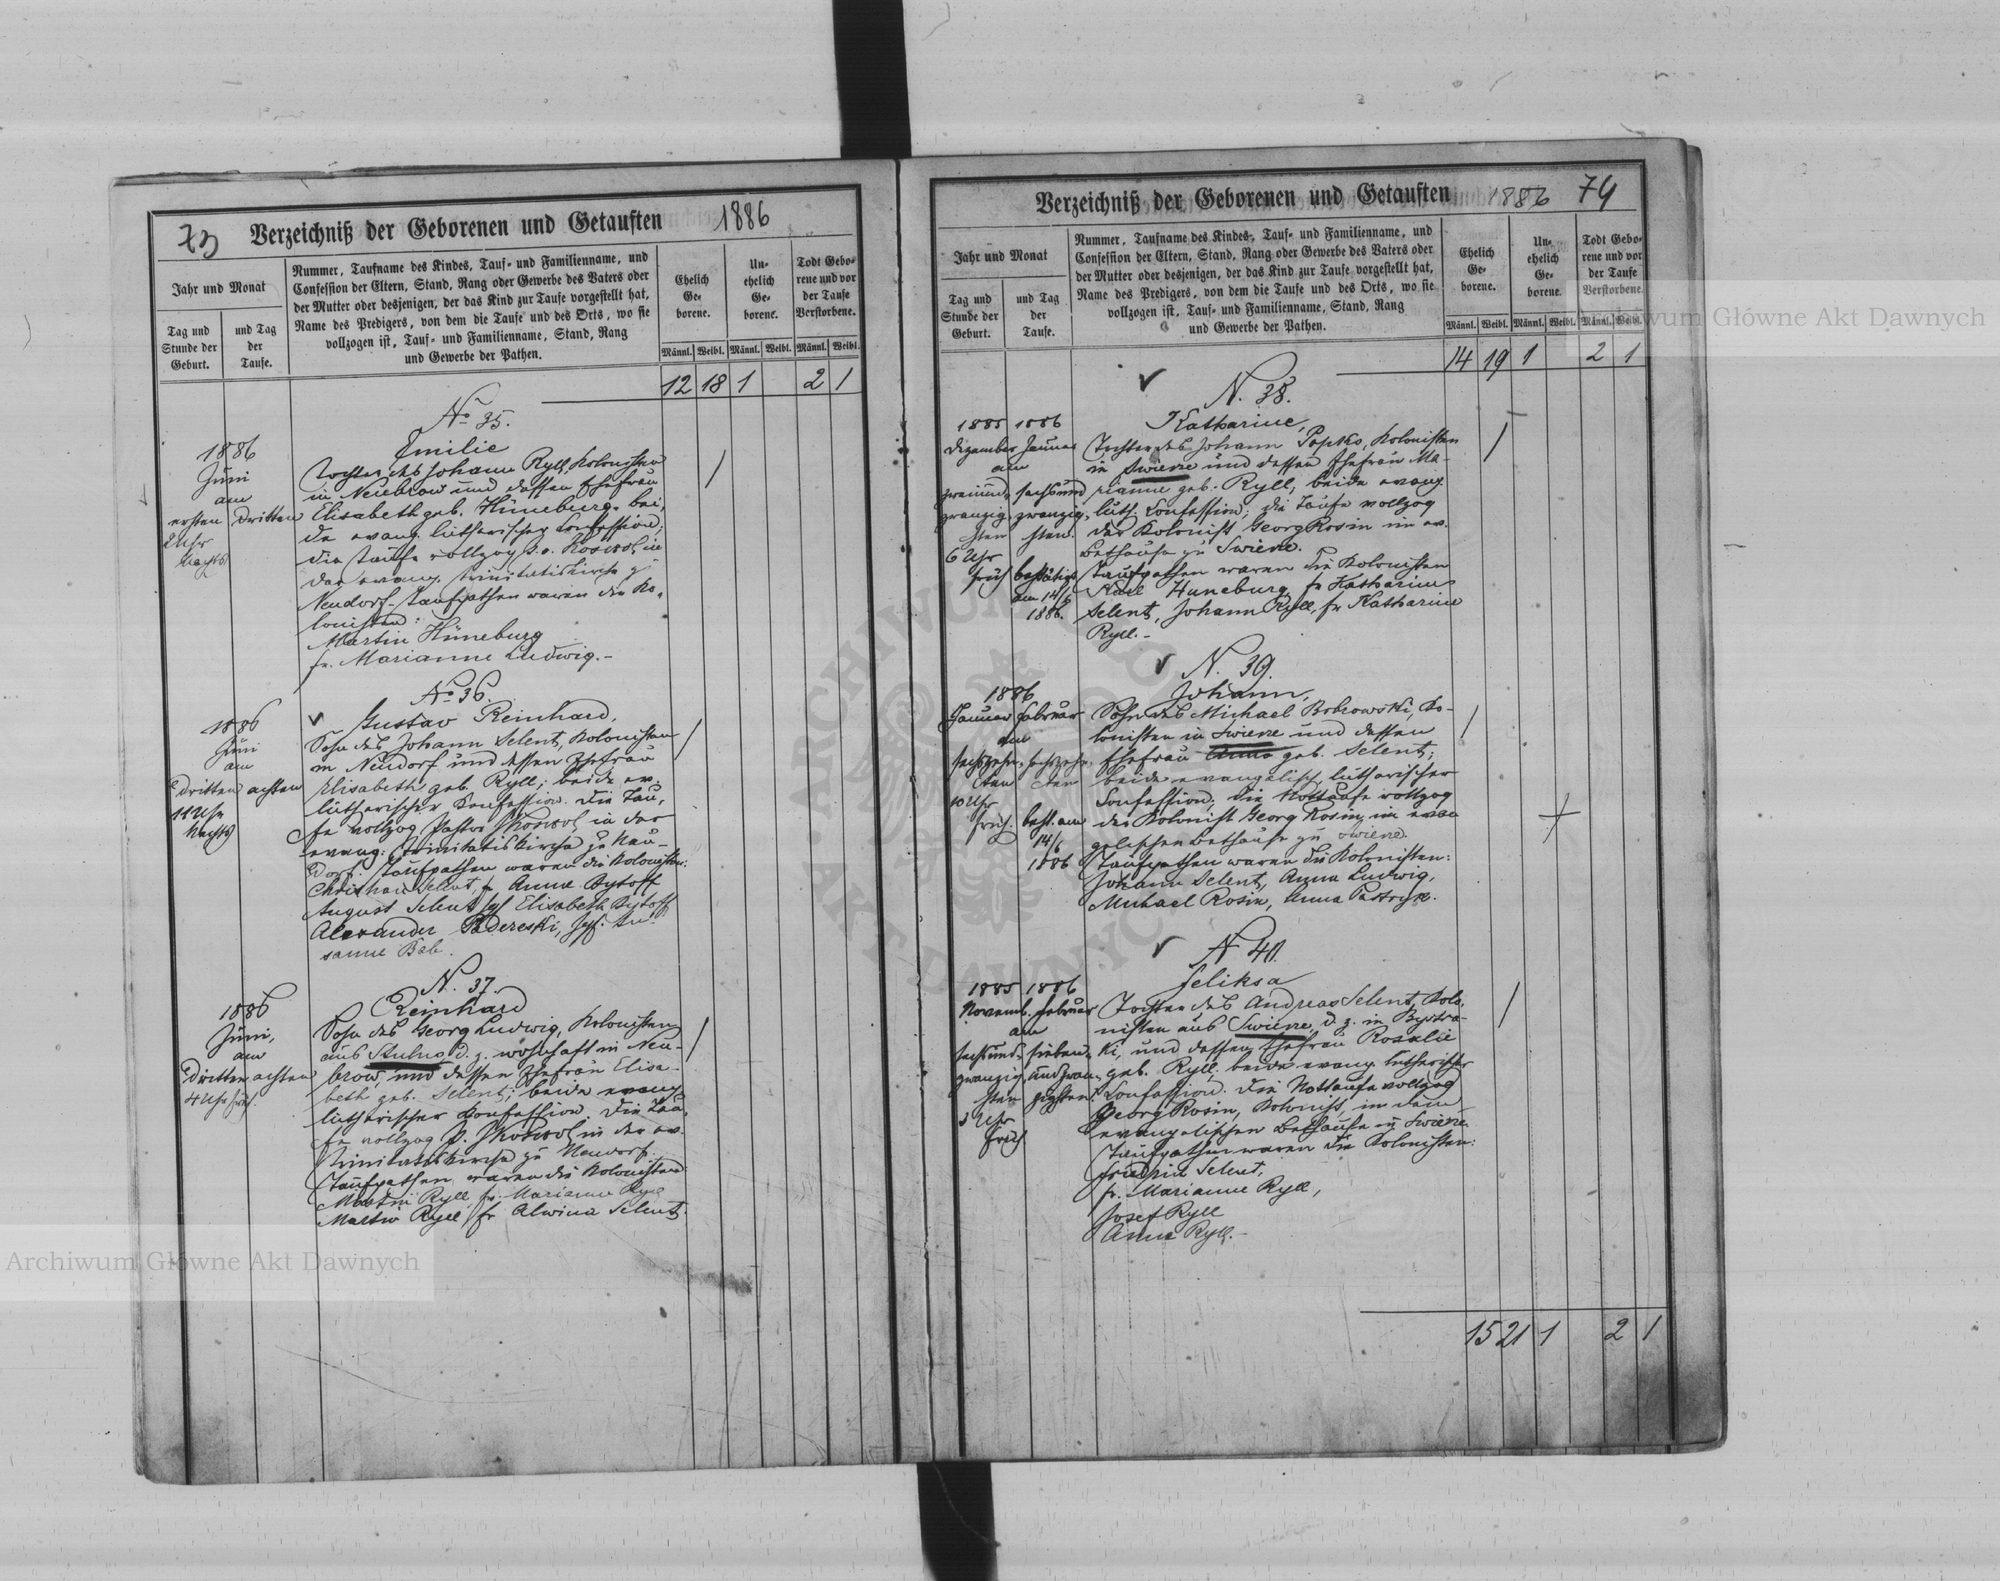 73 Verzeichniß der Geborenen und Getauften 1886
Jahr und Monat
Tag und Stunde der Geburt.
und Tag der Taufe.
Nummer, Taufname des Kindes, Tauf- und Familienname, und
Confession der Eltern, Stand, Rang oder Gewerbe des Vaters oder
der Mutter oder desjenigen, der das Kind zur Taufe vorgestellt hat,
Name des Predigers, von dem die Taufe und des Orts, wo sie
vollzogen ist, Tauf- und Familienname, Stand, Rang
und Gewerbe der Pathen.
Ehelich Ge- borene.
Un- ehelich Ge- borene.
Todt Gebo- rene und vor der Taufe Verstorbene.
Männl. Weibl. Männl. Weibl. Männl. Weibl.
12 18 1 2 1
No 35.
1886
Juni
am
ersten dritten
2 Uhr
Nachts
Emilie
Tochter des Johann Ryll, Kolonisten
in Neubrow und dessen Ehefrau
Elisabeth geb. Hüneburg, bei,
de evang. lutherischer Confession;
die Taufe vollzog in
der evang. Trinitatiskirche zu
Neudorf. Taufpathen waren die Ko,
lonisten:
Martin Hüneburg
fr. Marianne Ludwig.-
No 36.
1886
Juni
am
dritten achten
11 Uhr
Nachts
Gustav Reinhard,
Sohn des Johann Selent, Kolonisten
in Neudorf und dessen Ehefrau
Elisabeth geb. Ryll; beide ev.
lutherischer Confession. Die Tau,
fe vollzog Pastor in der
evang: Trinitatiskirche zu Neu-
dorf. Taufpathen waren die Kolonisten:
Christian Selent, fr. Anna Bytoff
August Selent, Elisabeth Bytoff
Alexander Padereski, Su-
sanne Bab.
N. 37.
1886
Juni,
am
dritten achten
4 Uhr früh.
Reinhard
Sohn des Georg Ludwig, Kolonisten
aus d. z. wohnhaft in Neu-
brow, und dessen Ehefrau Elisa-
beth geb. Selent; beide evang.
lutherischer Confession. Die Tau,
fe vollzog P. in der ev.
Trinitatiskirche zu Neudorf.
Taufpathen waren die Kolonisten
Martin Ryll, fr. Marianne Ryll
Martin Ryll, fr. Alwina Selent.
Verzeichniß der Geborenen und Getauften 1886 74
Jahr und Monat
Tag und Stunde der Geburt.
und Tag der Taufe.
Nummer, Taufname des Kindes, Tauf- und Familienname, und
Confession der Eltern, Stand, Rang oder Gewerbe des Vaters oder
der Mutter oder desjenigen, der das Kind zur Taufe vorgestellt hat,
Name des Predigers, von dem die Taufe und des Orts, wo sie
vollzogen ist, Tauf- und Familienname, Stand, Rang
und Gewerbe der Pathen.
Ehelich Ge- borene.
Un- ehelich Ge- borene.
Todt Gebo- rene und vor der Taufe Verstorbene.
Männl. Weibl. Männl. Weibl. Männl. Weibl.
14 19 1 2 1
N. 38.
1885 1886
Dezember Januar
am
zweiund- sechsund
zwanzig- zwanzig-
sten sten.
6 Uhr
früh bestätigt
am 14/6
1886.
Katharine,
Tochter des Johann Popko, Kolonisten
in Swierze und dessen Ehefrau Ma-
rianne geb. Ryll, beide evang.
luth. Confession; die Taufe vollzog
der Kolonist Georg Rosin im ev.
Bethause zu Swierze.
Taufpathen waren die Kolonisten
Karl Huneburg, fr. Katharine
Selent, Johann Ryll, fr. Katharine
Ryll.-
N. 39.
1886
Januar Februar
am
sechszehn- sechszehn-
ten ten
10 Uhr
früh. best. am
14/6
1886
Johann,
Sohn des Michael Bobrowski, Ko-
lonisten in Swierze und dessen
Ehefrau Anna geb. Selent;
beide evangelisch lutherischer
Confession; die Nottaufe vollzog
der Kolonist Georg Rosin, im evan
gelischen Bethause zu Swierze.
Taufpathen waren die Kolonisten:
Johann Selent, Anna Ludwig,
Michael Rosin, Anna Pastryk.
N. 40.
1885 1886
Novemb. Februar
am
sechsund- sieben-
zwanzig- undzwan-
sten zigsten.
3 Uhr
früh
Feliksa
Tochter des Andreas Selent, Kolo-
nisten aus Swierze, d. z. in Bystra-
ki, und dessen Ehefrau Rosalie
geb. Ryll, beide evang. lutherischer
Confession. Die Nottaufe vollzog
Georg Rosin, Kolonist, in dem
evangelischen Bethause zu Swierze.
Taufpathen waren die Kolonisten:
Friedrich Selent,
fr. Marianne Ryll,
Josef Ryll
Anna Ryll.-
15 21 1 2 1
Archiwum Główne Akt Dawnych
Archiwum Główne Akt Dawnych